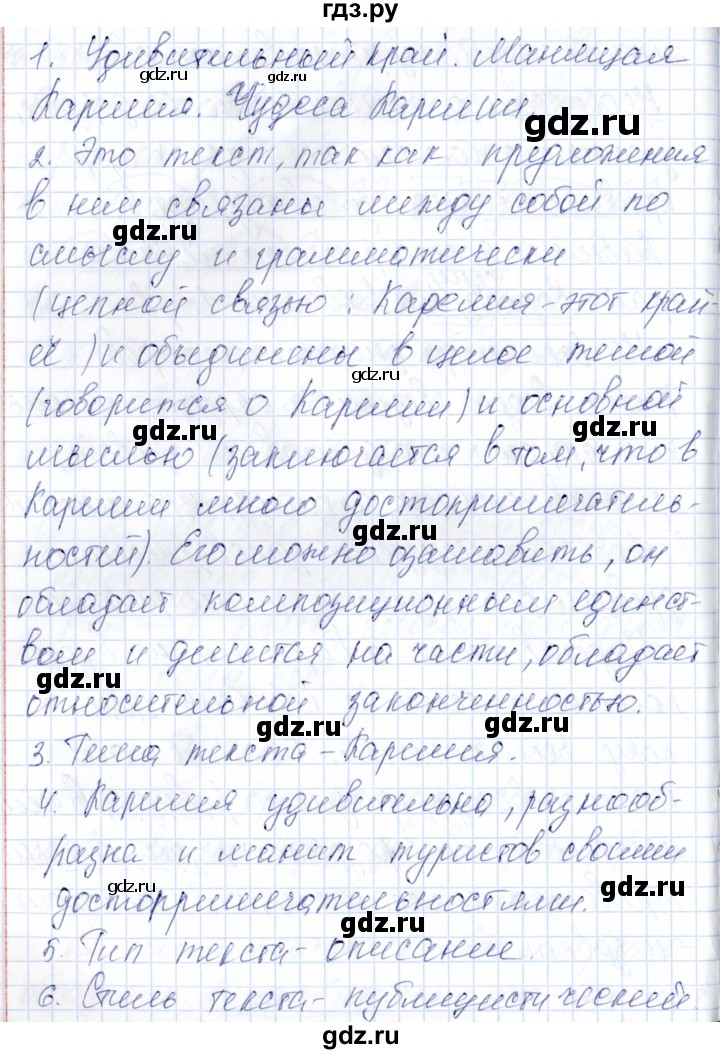 гдз.ру
1. Удивительный край. Манящая
Карелия. Чудеса Карелии
gdz.ru
2. Это текст, так как предложения
в ним связаны между собой по
gdz.ru
смыслу и грамматически
(цепной связью: Карелия-этот край-
её) и объединены в целое темой
gdz.ru
(говорится о Карелии) и основной
gdz.ru gdz.ru
мыслью (заключается в том, что в
Карелии много достопримечатель-
gdz.ru
ностей). Его можно озаглавить, он
обладает композиционным единст-
вом и делится на части, обладает
gdz.ru
относительной законченностью.
gdz.ru gdz.ru
3. Тема текста - Карелия.
4. Карелия удивительна, разнооб-
gdz.ru
разна и манит туристов своими
gdz.ru gdz.ru
досторримечательностями.
gdz.ru
5. Тип текста - описание.
gdz.ru
6. Стиль текста - публицистический.
gdz.ru